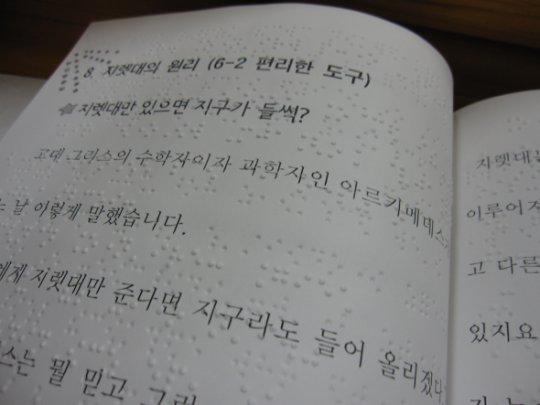 8. 지렛대의 원리 (6-2 편리한 도구)
지렛대만 있으면 지구가 들썩?
고대 그리스의 수학자이자 과학자인 아르키메데스
는 날 이렇게 말했습니다.
에게 지렛대만 준다면 지구라도 들어 올리겠다
스는 뭘 믿고 그런
지렛대는
이루어져
고 다른
있지요